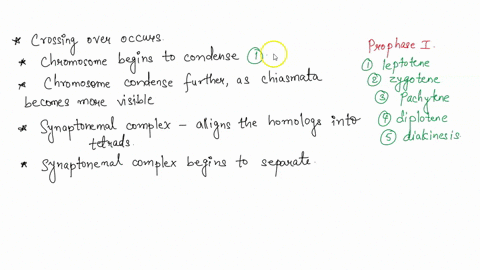 * Crossing over occurs.
* Chromosome begins to condense ①.
* Chromosome condense further, as chiasmata
becomes more visible
* Synaptonemal complex – aligns the homologs into
tetrads.
* Synaptonemal complex begins to separate.
Prophase I.
① leptotene
② zygotene
③ Pachytene
④ diplotene
⑤ diakinesis